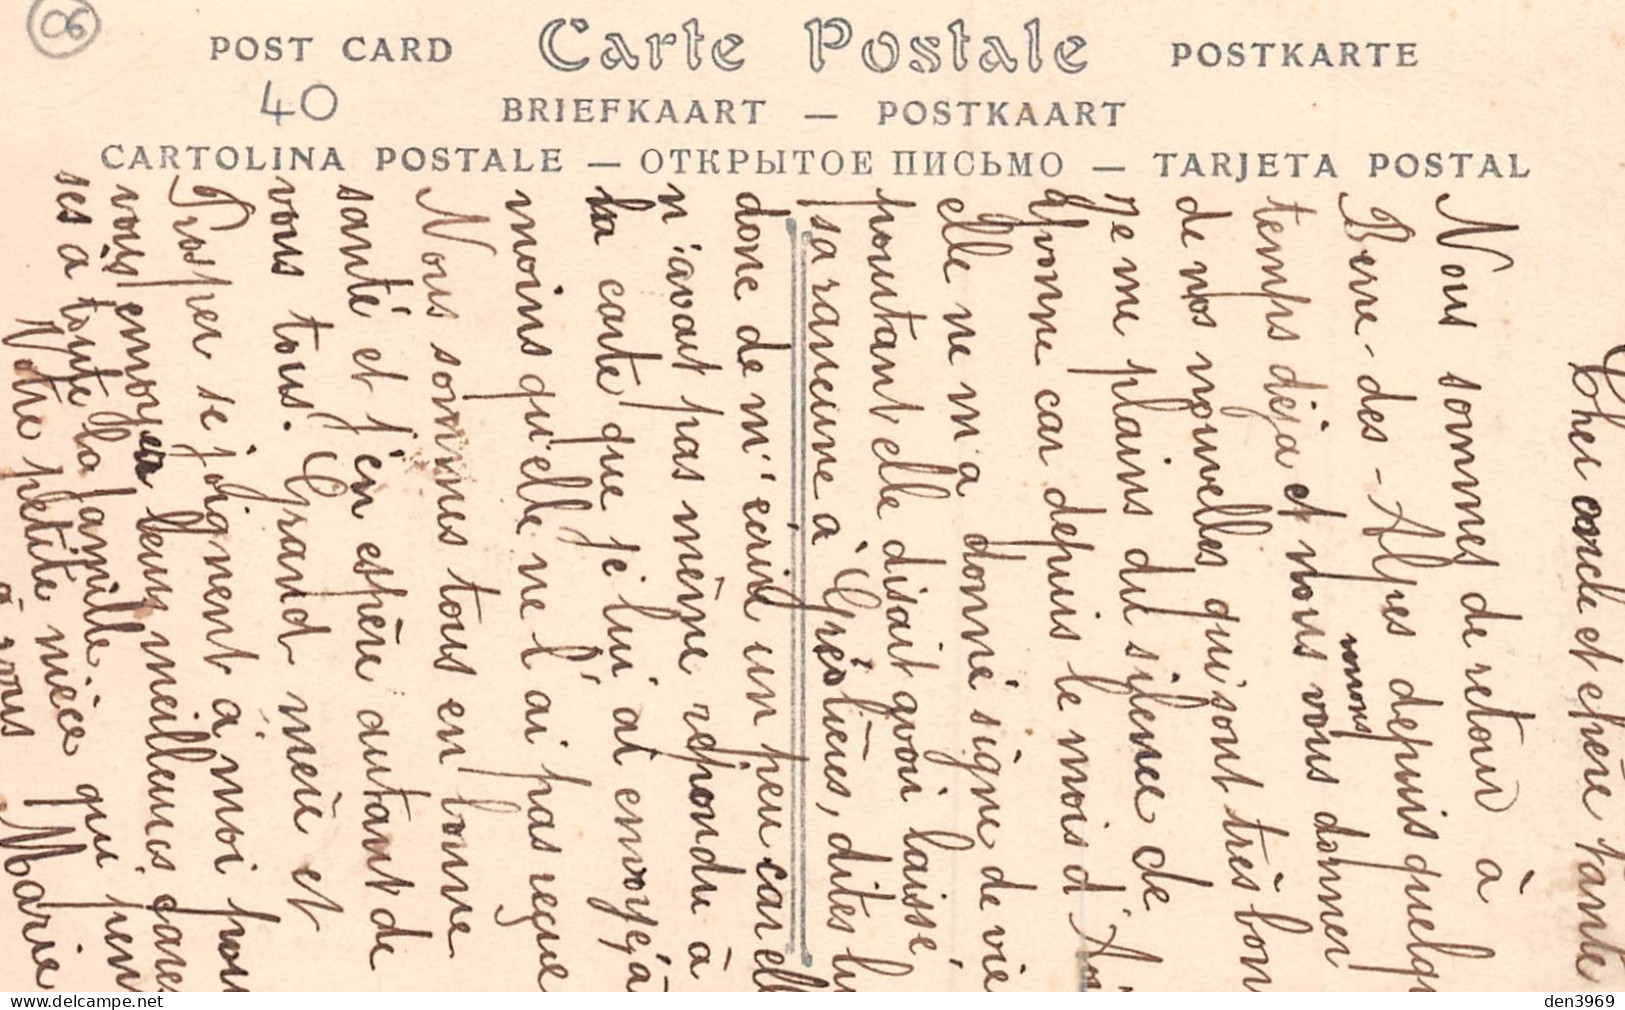 06
POST CARD Carte Postale POSTKARTE
40
BRIEFKAART — POSTKAART
CARTOLINA POSTALE — ОТКРЫТОЕ ПИСЬМО — TARJETA POSTAL
Cher oncle et chère tante
Nous sommes de retour à
Berre-des-Alpes depuis quelq
temps déja et nous vous donner
venons
de nos nouvelles qui sont très bon
Je me plains du silence de
Yvonne car depuis le mois d'Aoû
elle ne m'a donné signe de vie
pourtant elle disait avoir laissé
sa rancune à Gréolières, dites lu
donc de m'écrire un peu car ell
n'avait pas même répondu à
la carte que je lui ai envoyé à
moins qu'elle ne l'ai pas reçue
Nous sommes tous en bonne
santé et j'en espère autant de
vous tous. Grand mère et
Prosper se joignent à moi pour
vous envoyer leurs meilleures cares
ses a toute la famille
Notre petite nièce qui pen
à vous Marie
den3969